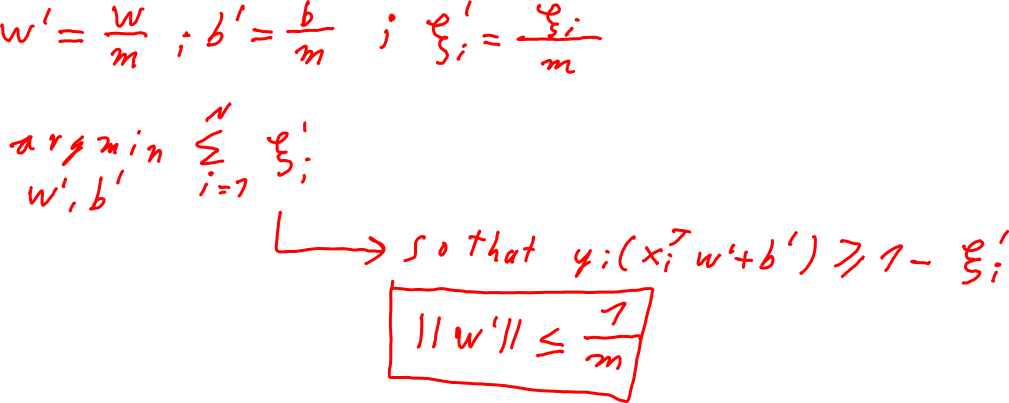 w' = w/m ; b' = b/m ; ξ_i' = ξ_i/m
argmin Σ_{i=1}^{N} ξ_i'
w', b'
so that y_i(x_i^T w' + b') ⩾ 1 - ξ_i'
||w'|| ≤ 1/m